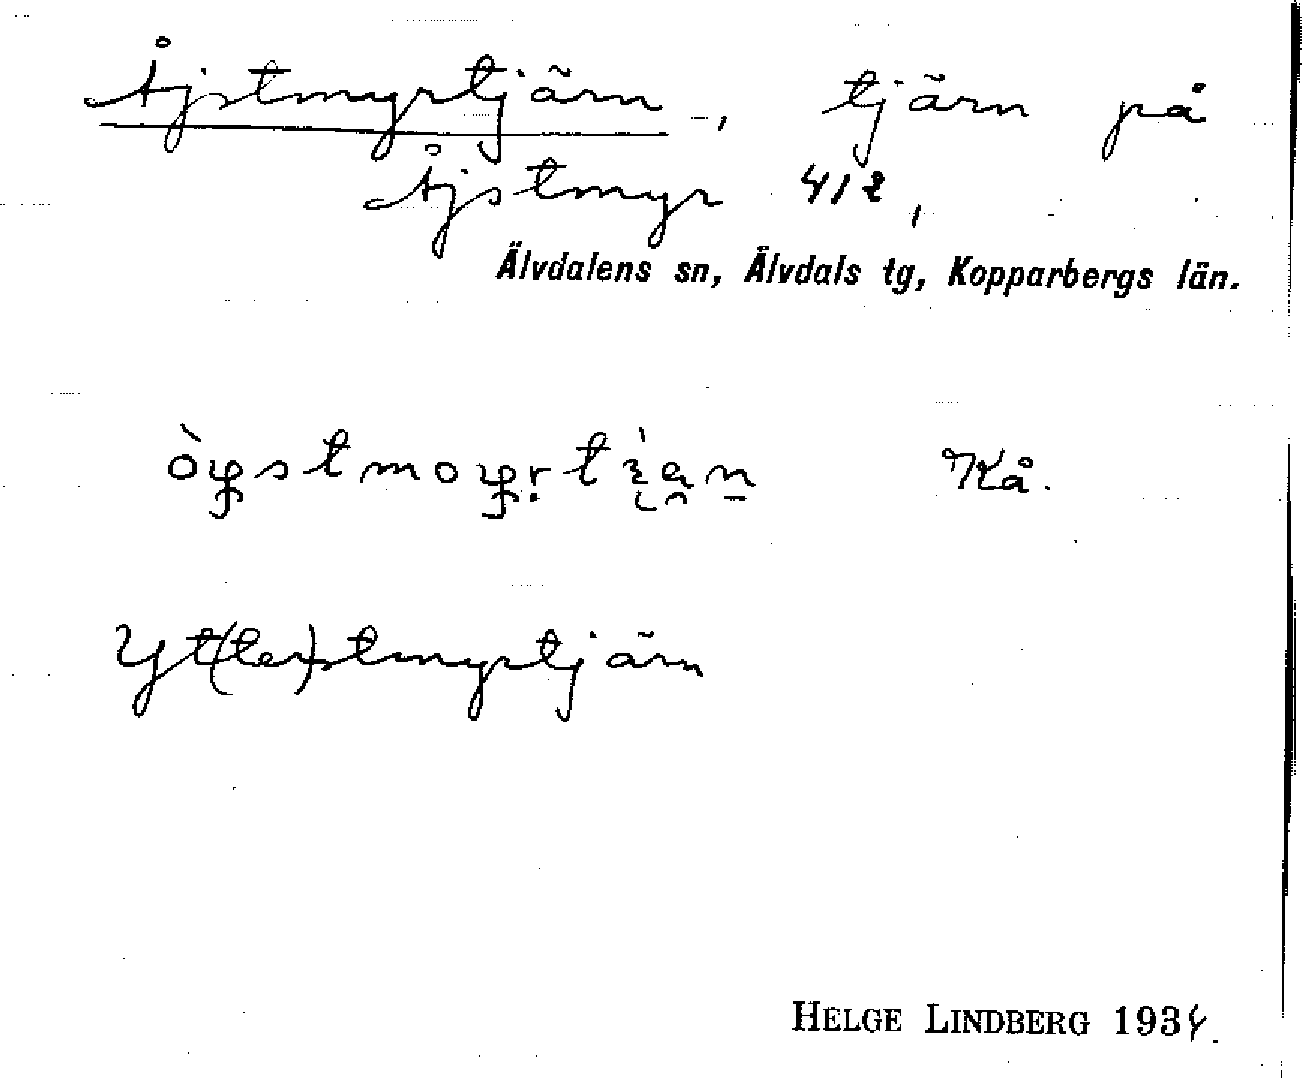 Åjstmyrtjärn, tjärn på
Åjstmyr 412,
Älvdalens sn, Älvdals tg, Kopparbergs län.
Kå.
Yt(ter)stmyrtjärn
HELGE LINDBERG 1934.